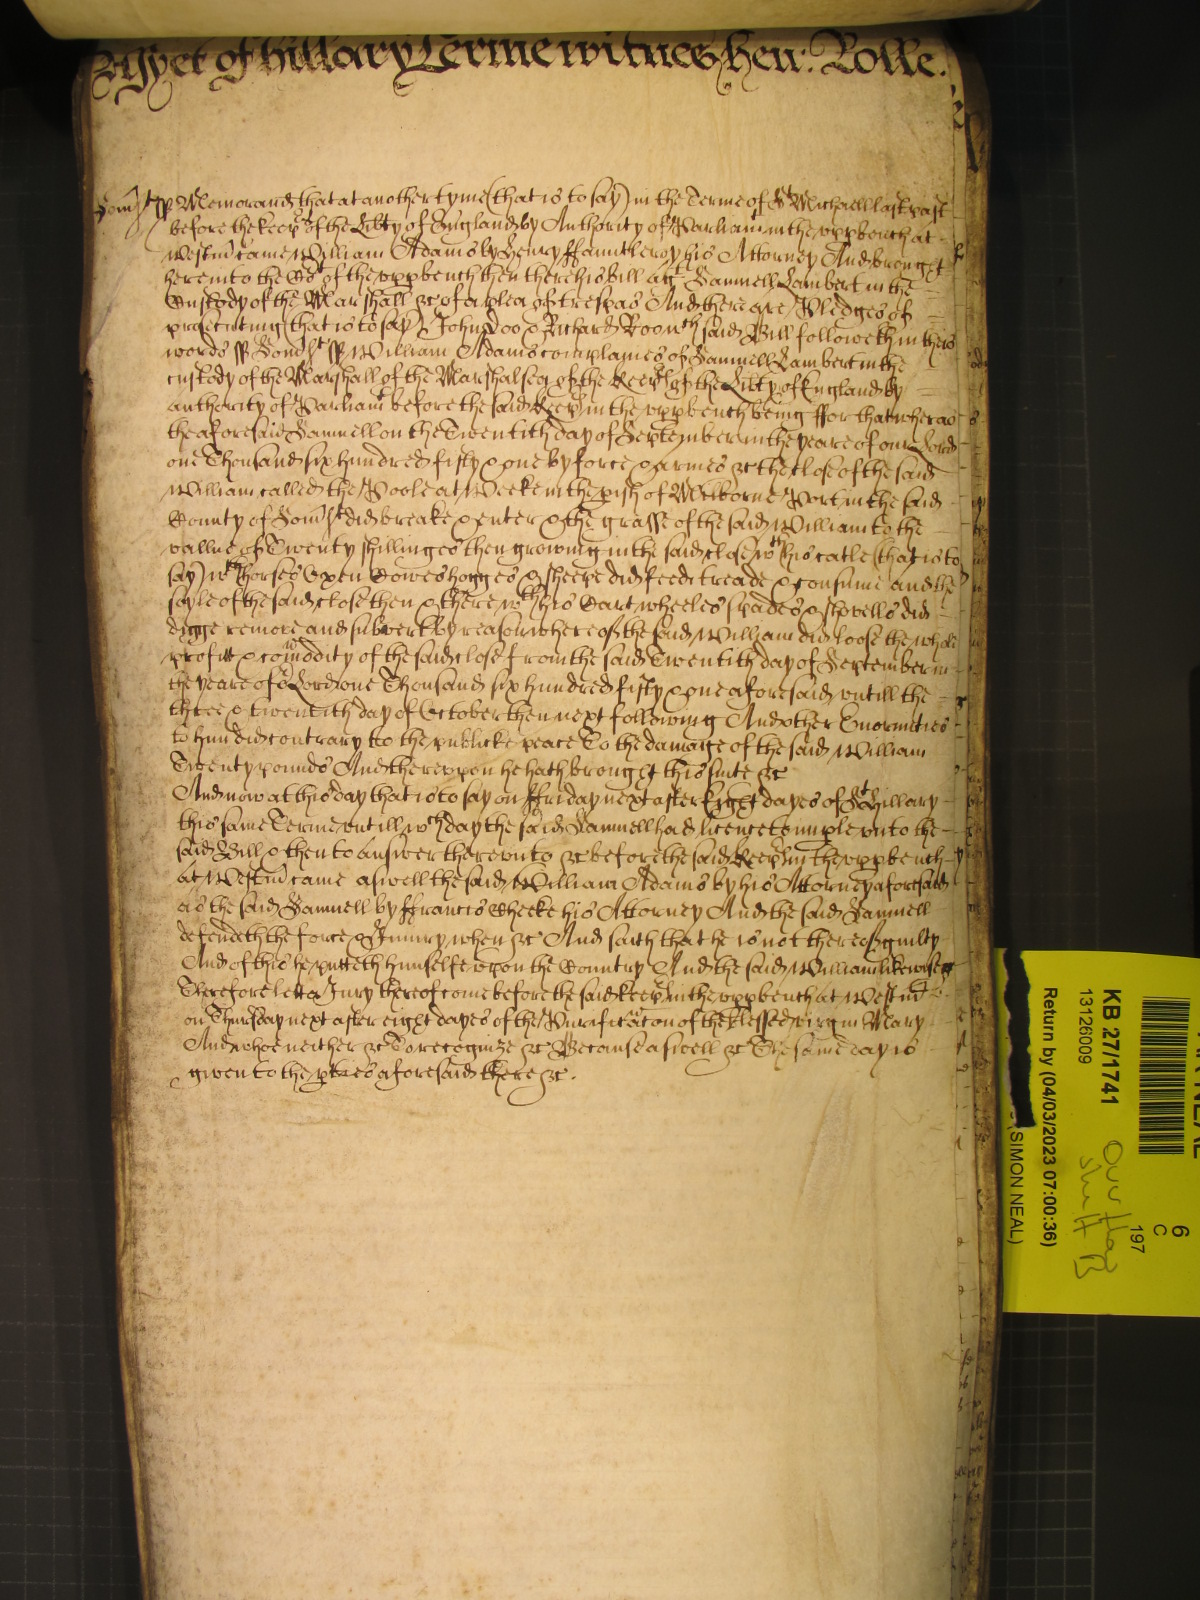 Yet of Hillary Terme witnes Hen: Rolle.
Som̃st ss Memorand that at another tyme (that is to say) in the Terme of St Michaell last past
before the keeps of the Lib̃ty of England by Authority of Parliamt in the upp bench at
Westm̃ came William Adams by Henry ffauntleroy his Attorney And brought
here into the Cort of the upp bench then there his bill agt Samuell Lambert in the
Custody of the Marshall &c of a plea of trespas And there are Pledges of
prosecuting (that is to say) John Doo & Richard Roo wch said Bill followeth in theis
words ss Som̃st ss William Adams complaines of Samuell Lambert in the
custody of the Marshall of the Marshalsea of the keeps of the Lib̃ty of England by
authority of Parliamt before the said keeps in the upp bench being ffor that whereas
the aforesaid Samuell on the Twentith day of September in the yeare of our Lord
one Thousand six hundred fifty & one by force & armes &c the close of the said
William called the Poole at Weeke in the pish of Milborne Port in the said
County of Som̃st did breake & enter & the grasse of the said William to the
vallue of Twenty shillinges then growing in the said close wth his catle (that is to
say) wth horses Oxen Cowes hogges & sheepe did feed treade & consume and the
soyle of the said close then & there wth his Cart wheeles spades & shovells did
digge remove and subvert by reason whereof the said William did loose the whole
profitt & com̃odity of the said close from the said Twentith day of September in
the yeare of or Lord one Thousand six hundred fifty & one aforesaid untill the
three & twentith day of October then next following And other Enormities
to him did contrary to the publicke peace To the damage of the said William
Twenty pounds And thereuppon he hath brought this suite &c
And now at this day that is to say on ffriday next after Eight dayes of St Hillary
this same Terme untill wch day the said Samuell had licence to imple unto the
said Bill & then to answer thereunto &c before the said keeps in the upp bench
at Westm̃ came aswell the said William Adams by his Attorney aforesaid
as the said Samuell by ffrancis Cheeke his Attorney And the said Samuell
defendeth the force & Iniury when &c And saith that he is not thereof guilty
And of this he putteth himselfe upon the Country And the said William likewise &c
Therefore lett a Jury thereof come before the said keeps in the upp bench at Westm̃
on Thursday next after eight dayes of the Purificac̃on of the blessed virgin Mary
And whoe neither &c To recognize &c Because aswell &c The same day is
given to the pties aforesaid there &c.
KB 27/1741
13126009
Return by (04/03/2023 07:00:36)
(SIMON NEAL)
6
C
197